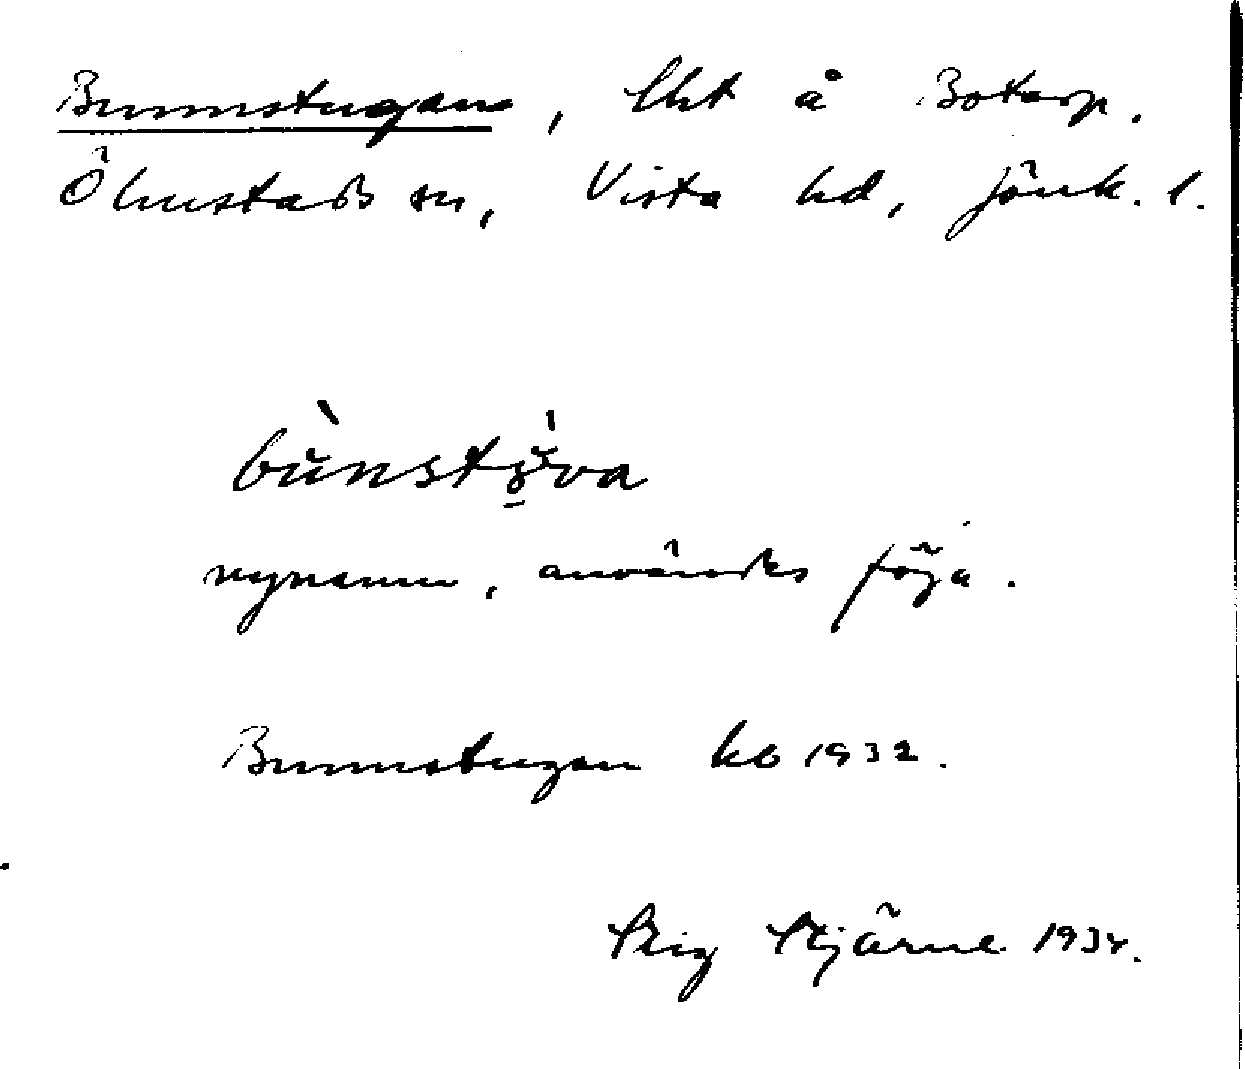 Brunnstugan, lht å Botarp.
Ölmstads sn, Vista hd, Jönk. l.
nynamn, användes föga.
Brunnstugan kb 1932.
Stig Stjärne 1934.